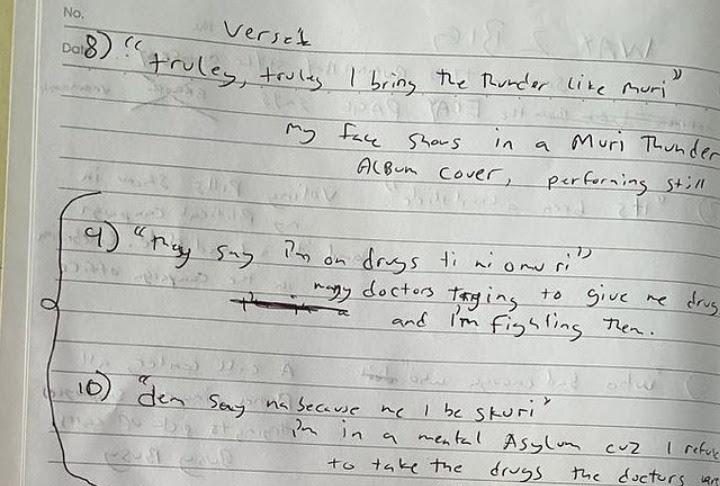 No.
Verse 1
Date
8) "truley, truley I bring the thunder like muri"
my face shows in a Muri Thunder
Album cover, performing still
9) "They say i'm on drugs ti ni omu ri"
many doctors trying to give me drug
and i'm fighting them.
10) "dem say na because me I be skuri"
i'm in a mental Asylum cuz I refuse
to take the drugs the doctors